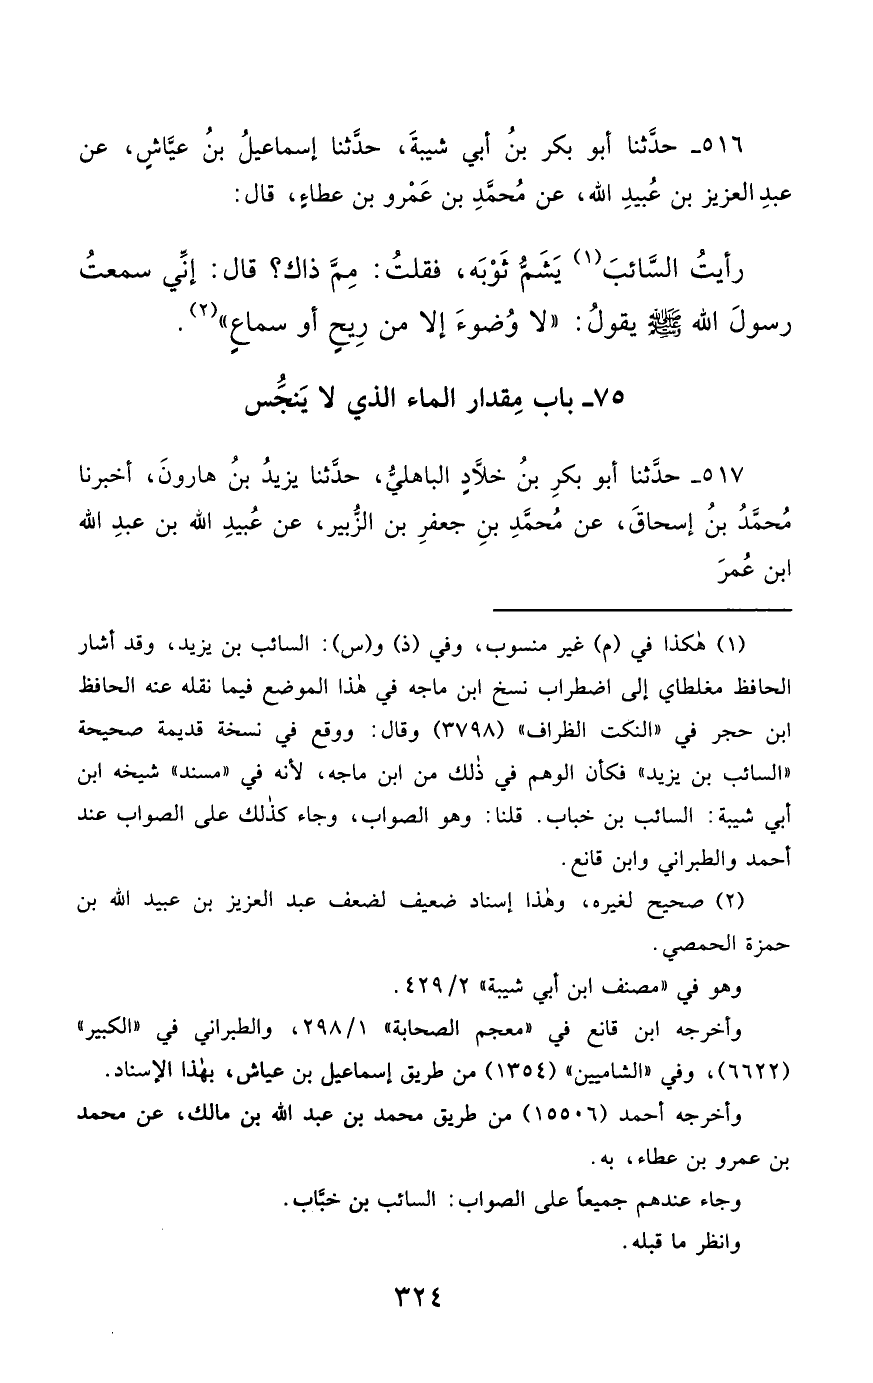 ٥١٦ـ حدَّثنا أبو بكر بنُ أبي شيبةَ، حدَّثنا إسماعيلُ بنُ عيَّاشٍ، عن
عبدِ العزيز بن عُبيدِ الله، عن مُحمَّدِ بن عَمْرو بن عطاءٍ، قال:
رأيتُ السَّائبَ(١) يَشَمُّ ثَوْبَه، فقلتُ: مِمَّ ذاك؟ قال: إنِّي سمعتُ
رسولَ الله ﷺ يقولُ: «لا وُضوءَ إلا من رِيحٍ أو سماعٍ»(٢).
٧٥ـ باب مِقدار الماء الذي لا يَنجُس
٥١٧ـ حدَّثنا أبو بكرِ بنُ خلاَّدٍ الباهليُّ، حدَّثنا يزيدُ بنُ هارونَ، أخبرنا
مُحمَّدُ بنُ إسحاقَ، عن مُحمَّدِ بنِ جعفرِ بن الزُّبير، عن عُبيدِ الله بن عبدِ الله
ابن عُمرَ
(١) هٰكذا في (م) غير منسوب، وفي (ذ) و(س): السائب بن يزيد، وقد أشار
الحافظ مغلطاي إلى اضطراب نسخ ابن ماجه في هٰذا الموضع فيما نقله عنه الحافظ
ابن حجر في «النكت الظراف» (٣٧٩٨) وقال: ووقع في نسخة قديمة صحيحة
«السائب بن يزيد» فكأن الوهم في ذٰلك من ابن ماجه، لأنه في «مسند» شيخه ابن
أبي شيبة: السائب بن خباب. قلنا: وهو الصواب، وجاء كذٰلك على الصواب عند
أحمد والطبراني وابن قانع.
(٢) صحيح لغيره، وهٰذا إسناد ضعيف لضعف عبد العزيز بن عبيد الله بن
حمزة الحمصي.
وهو في «مصنف ابن أبي شيبة» ٤٢٩/٢.
وأخرجه ابن قانع في «معجم الصحابة» ٢٩٨/١، والطبراني في «الكبير»
(٦٦٢٢)، وفي «الشاميين» (١٣٥٤) من طريق إسماعيل بن عياش، بهٰذا الإسناد.
وأخرجه أحمد (١٥٥٠٦) من طريق محمد بن عبد الله بن مالك، عن محمد
بن عمرو بن عطاء، به.
وجاء عندهم جميعاً على الصواب: السائب بن خبَّاب.
وانظر ما قبله.
٣٢٤